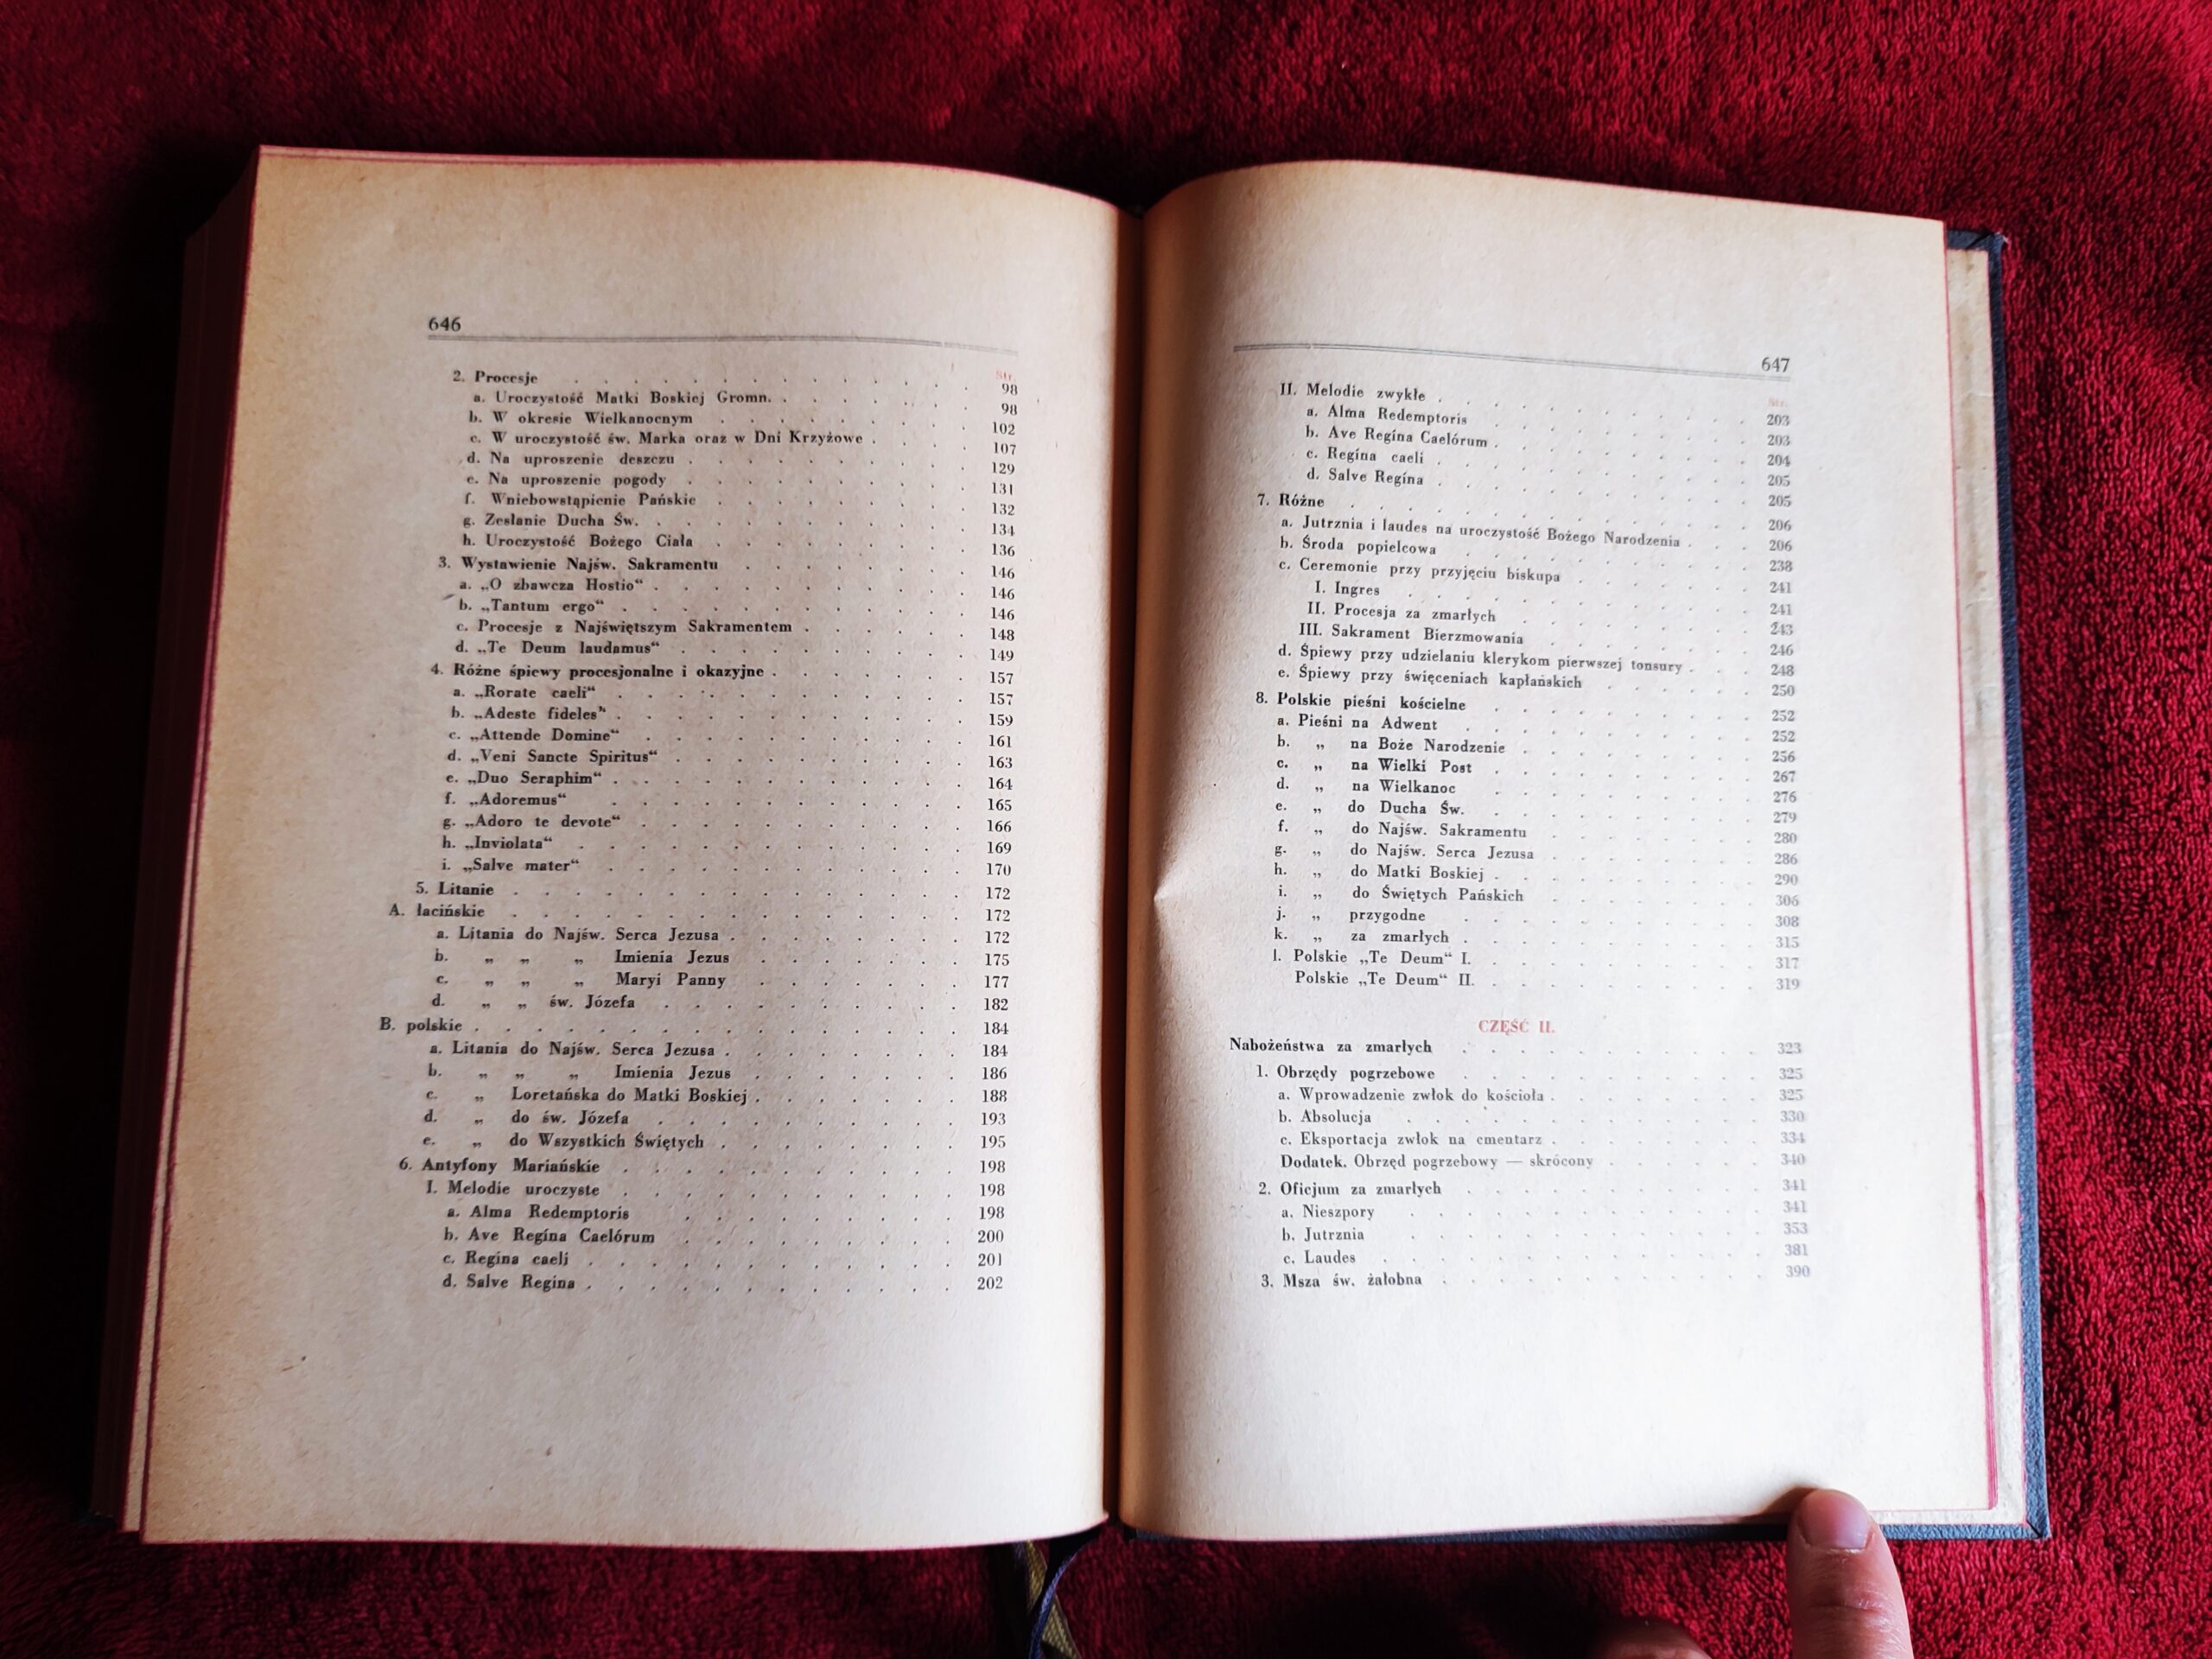 646
Str.
2. Procesje . . . . . . . . . . . . . 98
a. Uroczystość Matki Boskiej Gromn. . . . . . . 98
b. W okresie Wielkanocnym . . . . . . . . . 102
c. W uroczystość św. Marka oraz w Dni Krzyżowe . . . . 107
d. Na uproszenie deszczu . . . . . . . . . 129
e. Na uproszenie pogody . . . . . . . . . 131
f. Wniebowstąpienie Pańskie . . . . . . . . . 132
g. Zesłanie Ducha Św. . . . . . . . . . . 134
h. Uroczystość Bożego Ciała . . . . . . . . . 136
3. Wystawienie Najśw. Sakramentu . . . . . . . . 146
a. „O zbawcza Hostio“ . . . . . . . . . . 146
b. „Tantum ergo“ . . . . . . . . . . . 146
c. Procesje z Najświętszym Sakramentem . . . . . . 148
d. „Te Deum laudamus“ . . . . . . . . . . 149
4. Różne śpiewy procesjonalne i okazyjne . . . . . . . 157
a. „Rorate caeli“ . . . . . . . . . . . 157
b. „Adeste fideles“ . . . . . . . . . . . 159
c. „Attende Domine“ . . . . . . . . . . 161
d. „Veni Sancte Spiritus“ . . . . . . . . . 163
e. „Duo Seraphim“ . . . . . . . . . . . 164
f. „Adoremus“ . . . . . . . . . . . 165
g. „Adoro te devote“ . . . . . . . . . . 166
h. „Inviolata“ . . . . . . . . . . . . 169
i. „Salve mater“ . . . . . . . . . . . 170
5. Litanie . . . . . . . . . . . . . 172
A. łacińskie . . . . . . . . . . . . . 172
a. Litania do Najśw. Serca Jezusa . . . . . . . . 172
b. „ „ „ Imienia Jezus . . . . . . . 175
c. „ „ „ Maryi Panny . . . . . . . 177
d. „ „ św. Józefa . . . . . . . . . 182
B. polskie . . . . . . . . . . . . . . 184
a. Litania do Najśw. Serca Jezusa . . . . . . . . 184
b. „ „ „ Imienia Jezus . . . . . . . 186
c. „ Loretańska do Matki Boskiej . . . . . . . 188
d. „ do św. Józefa . . . . . . . . . 193
e. „ do Wszystkich Świętych . . . . . . . . 195
6. Antyfony Mariańskie . . . . . . . . . . . 198
I. Melodie uroczyste . . . . . . . . . . . 198
a. Alma Redemptoris . . . . . . . . . 198
b. Ave Regína Caelórum . . . . . . . . . 200
c. Regina caeli . . . . . . . . . . . 201
d. Salve Regina . . . . . . . . . . . 202
647
Str.
II. Melodie zwykłe . . . . . . . . . . . 203
a. Alma Redemptoris . . . . . . . . . . 203
b. Ave Regína Caelórum . . . . . . . . . 204
c. Regína caeli . . . . . . . . . . . 205
d. Salve Regína . . . . . . . . . . . 205
7. Różne . . . . . . . . . . . . . 206
a. Jutrznia i laudes na uroczystość Bożego Narodzenia . . . 206
b. Środa popielcowa . . . . . . . . . . 238
c. Ceremonie przy przyjęciu biskupa . . . . . . . 241
I. Ingres . . . . . . . . . . . . 241
II. Procesja za zmarłych . . . . . . . . . 243
III. Sakrament Bierzmowania . . . . . . . . 246
d. Śpiewy przy udzielaniu klerykom pierwszej tonsury . . . 248
e. Śpiewy przy święceniach kapłańskich . . . . . . 250
8. Polskie pieśni kościelne . . . . . . . . . . 252
a. Pieśni na Adwent . . . . . . . . . . 252
b. „ na Boże Narodzenie . . . . . . . . 256
c. „ na Wielki Post . . . . . . . . . 267
d. „ na Wielkanoc . . . . . . . . . . 276
e. „ do Ducha Św. . . . . . . . . . . 279
f. „ do Najśw. Sakramentu . . . . . . . . 280
g. „ do Najśw. Serca Jezusa . . . . . . . . 286
h. „ do Matki Boskiej . . . . . . . . . 290
i. „ do Świętych Pańskich . . . . . . . . 306
j. „ przygodne . . . . . . . . . . 308
k. „ za zmarłych . . . . . . . . . . 315
l. Polskie „Te Deum“ I. . . . . . . . . . . 317
Polskie „Te Deum“ II. . . . . . . . . . . 319
CZĘŚĆ II.
Nabożeństwa za zmarłych . . . . . . . . . . . 323
1. Obrzędy pogrzebowe . . . . . . . . . . . 325
a. Wprowadzenie zwłok do kościoła . . . . . . . . 325
b. Absolucja . . . . . . . . . . . . 330
c. Eksportacja zwłok na cmentarz . . . . . . . . 334
Dodatek. Obrzęd pogrzebowy — skrócony . . . . . . 340
2. Oficjum za zmarłych . . . . . . . . . . . 341
a. Nieszpory . . . . . . . . . . . . 341
b. Jutrznia . . . . . . . . . . . . 353
c. Laudes . . . . . . . . . . . . . 381
3. Msza św. żałobna . . . . . . . . . . . 390